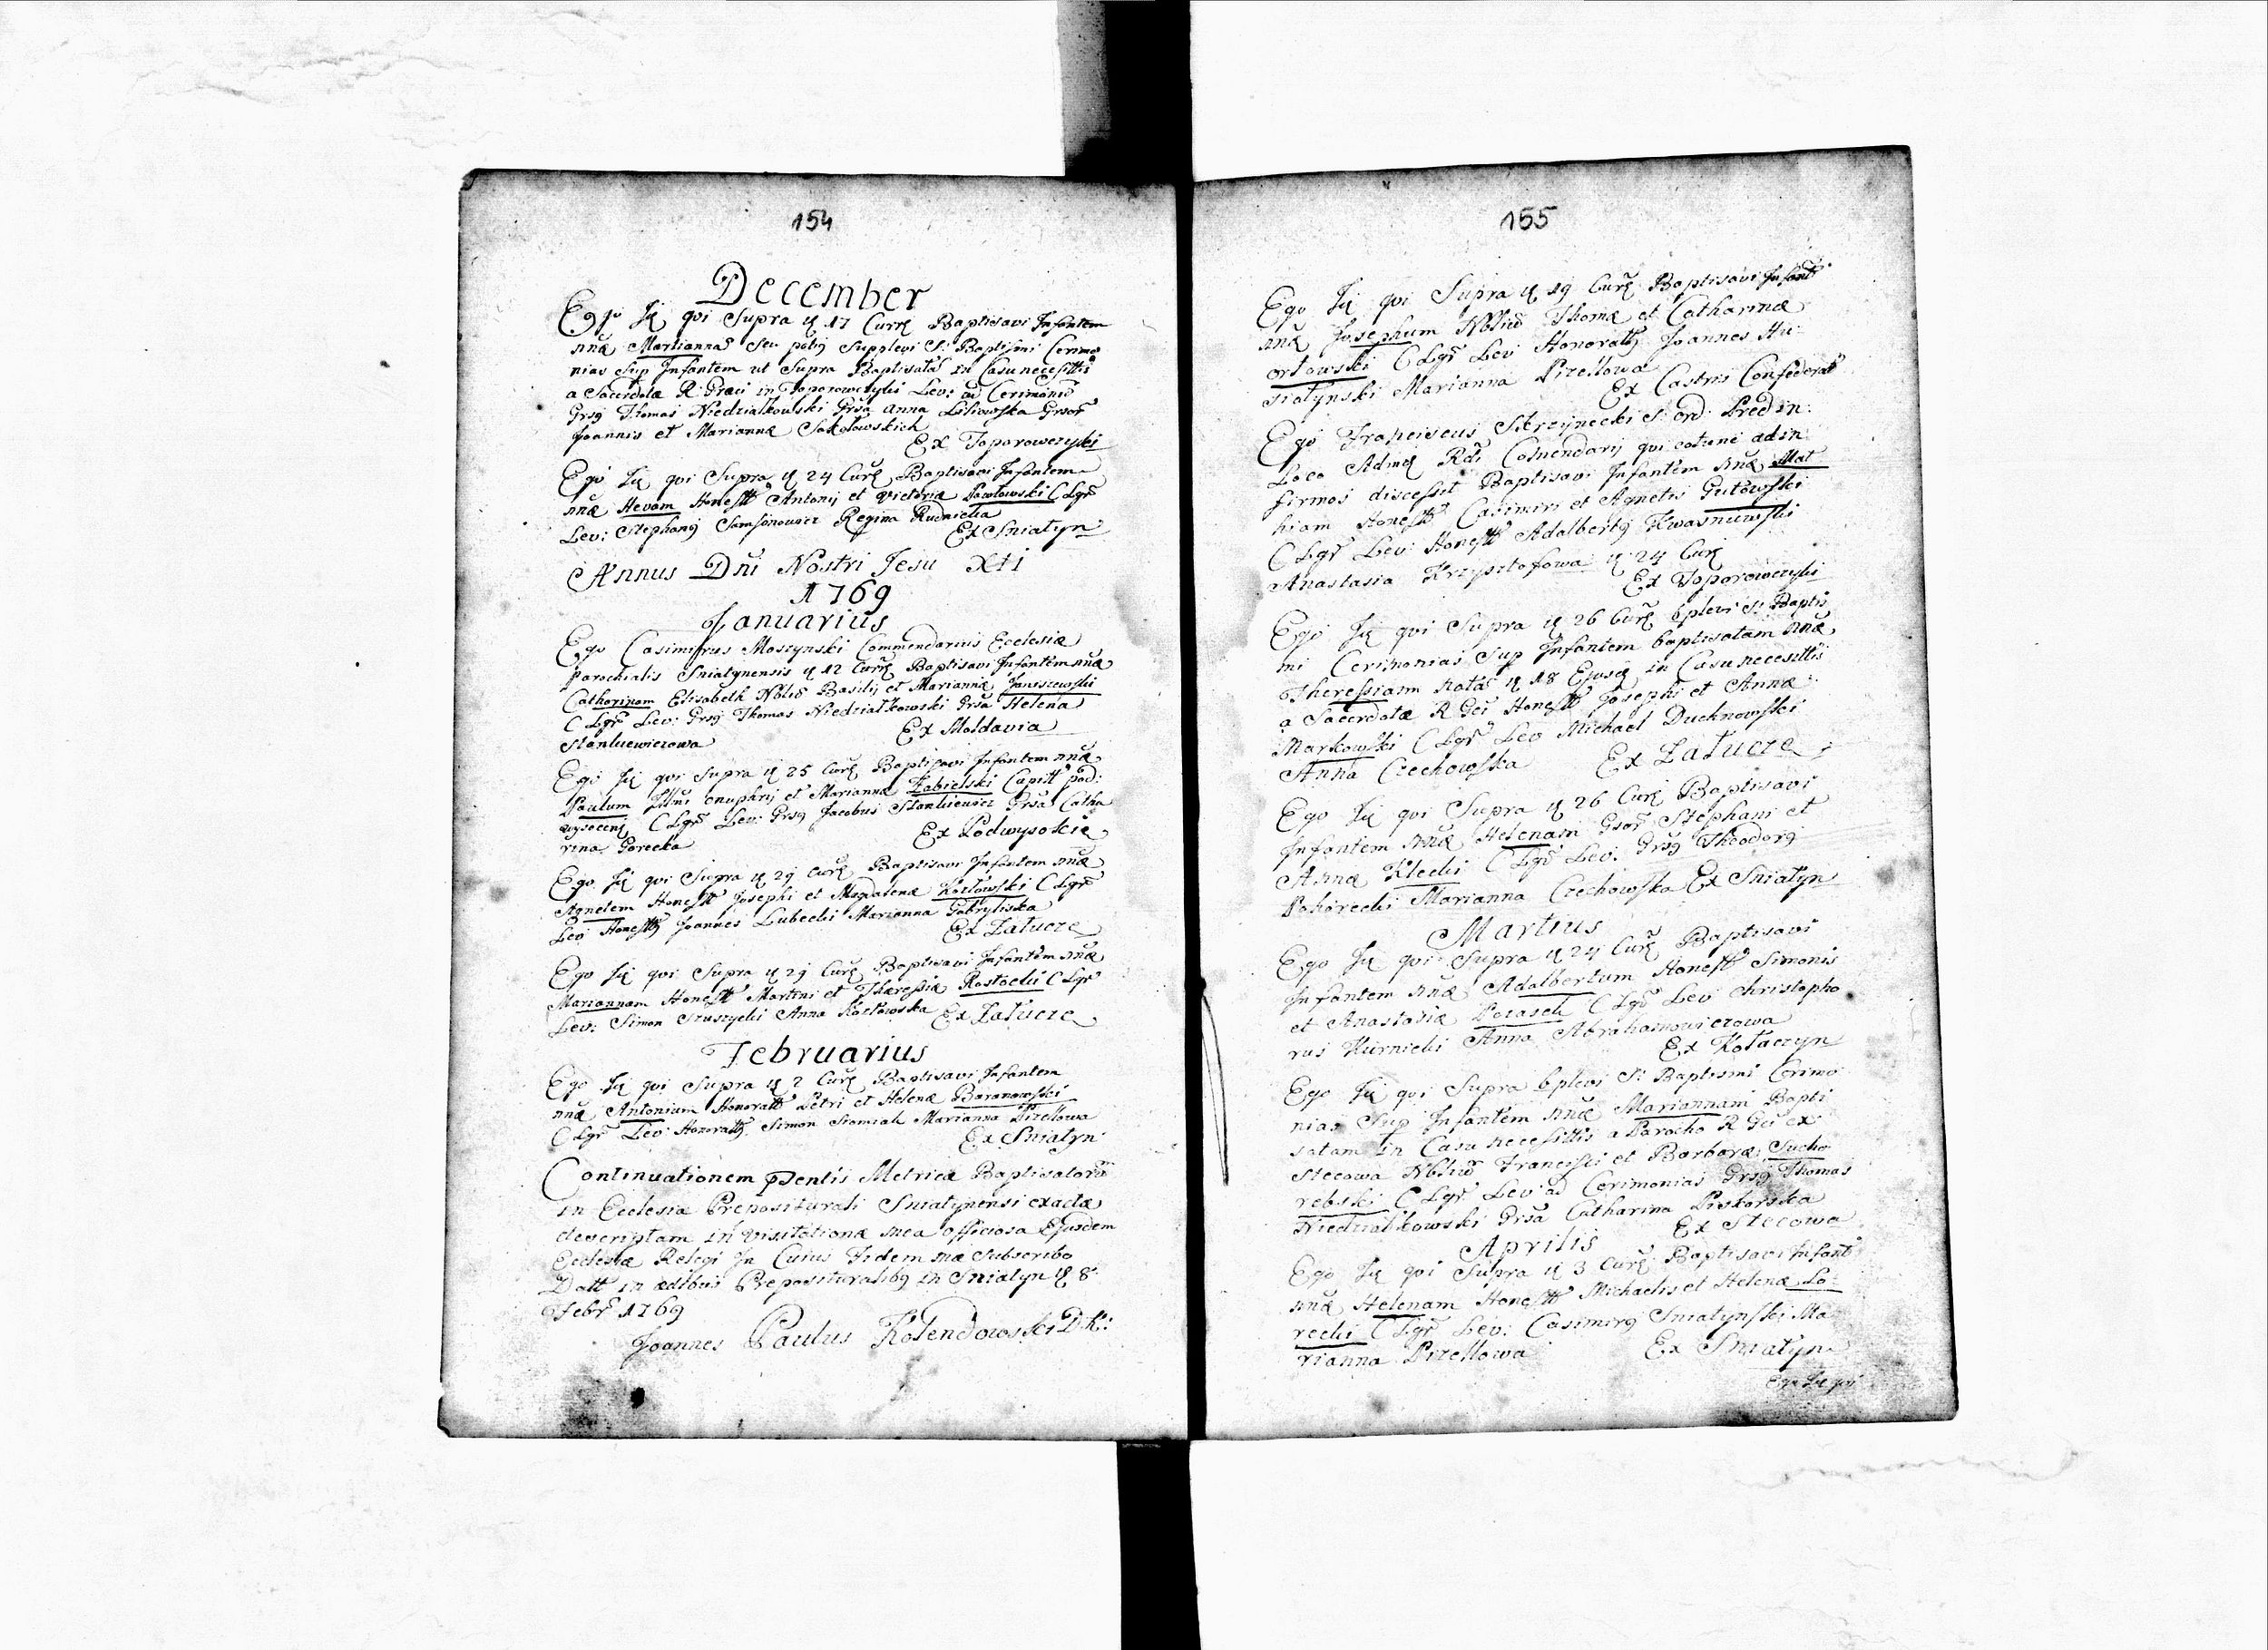 154
December
Ego Ję qvi Supra ꝗ 17 Curre Baptisavi Infantem
nnæ Mariannam seu potiꝯ Supplevi S: Baptismi Cerimo
nias Sup Infantem ut Supra Baptisatã in Casu necesittis
a Sacerdotæ R: Græci in Toporowczyki Lev: ad Cerimonis
Grsꝯ Thomas Niedzialkowski Grsa Anna Liliowska Grsor
Joannis et Mariannæ Sokołowskich
Ex Toporowczyki
Ego Ję qvi Supra ꝗ 24 Curre Baptisavi Infantem
nnæ Hevam Honestt Antonij et Victoriæ Pawłowski CLgr
Lev: Stephanꝯ Samsonowicz Regina Rudnicka
Ex Sniatyn
Annus Dni Nostri Jesu Xti
1769
Januarius
Ego Casimirus Moszynski Commendarius Ecclesiæ
Parochialis Sniatynensis ꝗ 12 Curre Baptisavi Infantem nnæ
Catharinam Elisabeth Nbliũ Basilij et Mariannæ Janiszewski
CLgr Lev: Grsꝯ Thomas Niedziałkowski Grsa Helena
Stankiewiczowa
Ex Moldavia
Ego Ję qvi Supra ꝗ 25 Curre Baptisavi Infantem nnæ
Paulum Illmi Onuphrij et Mariannæ Zabielski Capitt pod:
wysocenꝯ CLgr Lev: Grsꝯ Jacobus Stankiewicz Grsa Catha
rina Gorecka
Ex Podwysokie
Ego Ję qvi Supra ꝗ 29 Curre Baptisavi Infantem nnæ
Agnetem Honestt Josephi et Magdalenæ Kozłowski CLgr
Lev Honesttꝯ Joannes Lubecki Marianna Gabryliska
Ex Załucze
Ego Ję qvi Supra ꝗ 29 Curre Baptisavi Infantem nnæ
Mariannam Honestt Martini et Theressiæ Rostocki CLgr
Lev: Simon Szuszycki Anna Kozłowska Ex Załucze
Februarius
Ego Ję qvi Supra ꝗ 2 Curre Baptisavi Infantem
nnæ Antonium Honoratt Petri et Helenæ Baranowski
CLgr Lev: Honorattꝯ Simon Siomiak Marianna Pizellowa
Ex Sniatyn
Continuationem pꝛentis Metricæ Baptisatorũ
in Ecclesiæ Prepositurali Sniatynensi exactæ
descriptam in visitationæ mea officiosa Ejusdem
Ecclesiæ Relegi In Cuius Fidem me subscribo
Datt in ædibus Prepositturalibꝯ in Sniatyn ꝗ 8
Febr 1769
Joannes Paulus Kolendowski D.K:
155
Ego Ję qvi Supra ꝗ 19 Curre Baptisavi Infant
nnæ Josephum Nbliũ Thomæ et Catharinæ
Orłowski CLgr Lev Honorattꝯ Joannes Hu:
siatynski Marianna Pizellowa
Ex Castris Confederat
Ego Franciscus Skrzynecki S: Ord: Predin:
Loco Admꝗ Rdi Comendarij qvi eotunc ad in
firmos discessit Baptisavi Infantem nnæ Mat
hiam Honestt Casimiri et Agnetis Gutowski
CLgr Lev: Honestt Adalbertꝯ Kwasniewski
Anastasia Krzysztofowa ꝗ 24 Curre
Ex Toporowczyki
Ego Ję qvi Supra ꝗ 26 Curre Splevi S: Baptis
mi Cerimonias Sup Infantem baptisatam nnæ
Theressiam natã ꝗ 18 Ejusdꝗ in Casu necesittis
a Sacerdotæ R Gci Honestt Josephi et Annæ
Markowski CLgr Lev Michael Duchnowski
Anna Czechowska Ex Załucze
Ego Ję qvi Supra ꝗ 26 Curre Baptisavi
Infantem nnæ Helenam Gsor Stephani et
Annæ Klecki CLgr Lev: Grsꝯ Theodorꝯ
Pohorecki Marianna Czechowska Ex Sniatyn
Martius
Ego Ję qvi Supra ꝗ 24 Curre Baptisavi
Infantem nnæ Adalbertum Honestt Simonis
et Anastasiæ Potasch CLgr Lev Christopho
rus Kurnicki Anna Abrahamowiczowa
Ex Kołaczyn
Ego Ję qvi Supra Splevi S: Baptismi Cerimo
nias Sup Infantem nnæ Mariannam Bapti
satam in Casu necesittis a Parocho R Gci ex
Stecowa Nbliũ Francisci et Barbaræ Sucho
rebski CLgr Lev ad Cerimonias Grsꝯ Thomas
Niedziałkowski Grsa Catharina Piskorska
Ex Stecowa
Aprilis
Ego Ję qvi Supra ꝗ 3 Curre Baptisavi Infant
nnæ Helenam Honestt Michaelis et Helenæ Lo:
recki CLgr Lev: Casimirꝯ Sniatynski Ma
rianna Pizellowa Ex Sniatyn
Ego Ję qvi